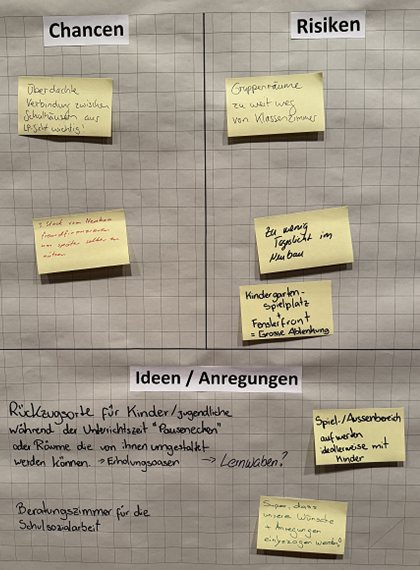 Chancen
Risiken
Überdachte
Verbindung zwischen
Schulhäusern aus
LP-Sicht wichtig!
Gruppenräume
zu weit weg
von Klassenzimmer
1 Stock vom Neubau
fremdfinanzieren
um später selber zu
nutzen
Zu wenig
Tageslicht im
Neubau
Kindergarten-
Spielplatz
+
Fensterfront
= Grosse Ablenkung
Ideen / Anregungen
Rückzugsorte für Kinder/Jugendliche
während der Unterrichtszeit "Pausenecken"
oder Räume die von ihnen umgestaltet
werden können. → Erholungsoasen → Lernwaben?
Spiel-/Aussenbereich
aufwerten
idealerweise mit
Kinder
Beratungszimmer für die
Schulsozialarbeit
Super, dass
unsere Wünsche
+ Anregungen
einbezogen werden!